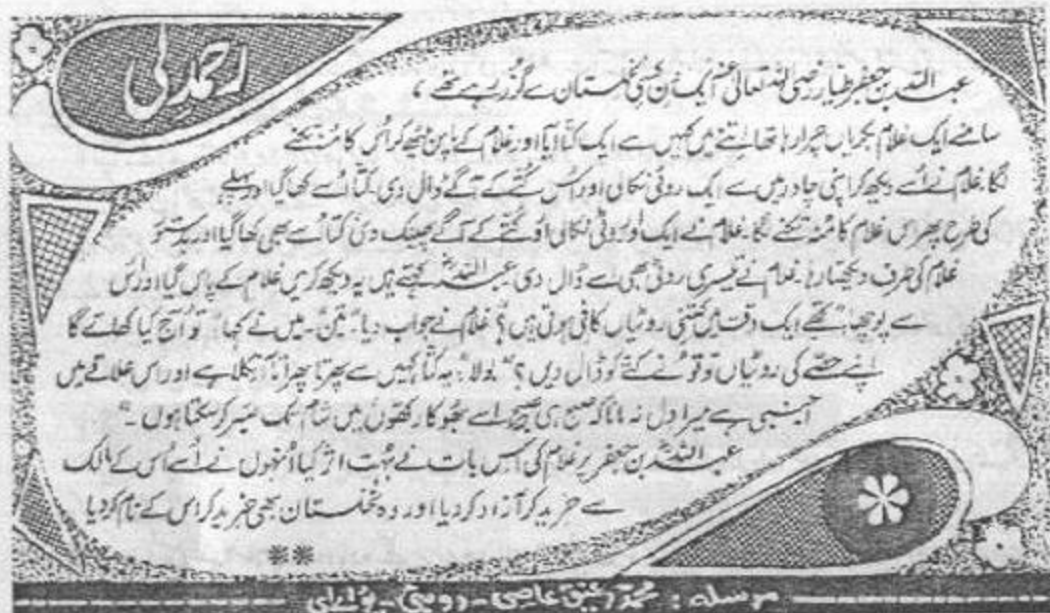 رحمدلی
عبداللہ بن جعفر طیار رضی اللہ تعالیٰ عنہ ایک دن کسی نخلستان سے گزر رہے تھے،
سامنے ایک غلام بکریاں چرا رہا تھا اتنے میں کہیں سے ایک کتا آیا اور غلام کے پاس بیٹھ کر اُس کا منہ تکنے
لگا۔ غلام نے اُسے دیکھ کر اپنی چادر میں سے ایک روٹی نکالی اور اُس کتے کے آگے ڈال دی۔ کتا اُسے کھا گیا اور پہلے
کی طرح پھر اس غلام کا منہ تکنے لگا۔ غلام نے ایک اور روٹی نکالی اور کتے کے آگے پھینک دی کتا اُسے بھی کھا گیا اور بدستور
غلام کی طرف دیکھتا رہا۔ غلام نے تیسری روٹی بھی اسے ڈال دی عبداللہؓ کہتے ہیں یہ دیکھ کر میں غلام کے پاس گیا اور اس
سے پوچھا "تجھے ایک وقت میں کتنی روٹیاں کافی ہوتی ہیں؟" غلام نے جواب دیا "تین"۔ میں نے کہا "تو آج کیا کھائے گا
اپنے حصے کی روٹیاں تو تو نے کتے کو ڈال دیں؟" بولا "یہ کتا کہیں سے پھرتا پھراتا آ نکلا ہے اور اس علاقے میں
اجنبی ہے میرا دل نہ مانا کہ صبح ہی صبح اسے بھوکا رکھوں میں شام تک صبر کر سکتا ہوں۔"
عبداللہؓ بن جعفر پر غلام کی اس بات نے بہت اثر کیا انہوں نے اُسے اُس کے مالک
سے خرید کر آزاد کر دیا اور وہ نخلستان بھی خرید کر اس کے نام کر دیا
مرسلہ: محمد عاصی -